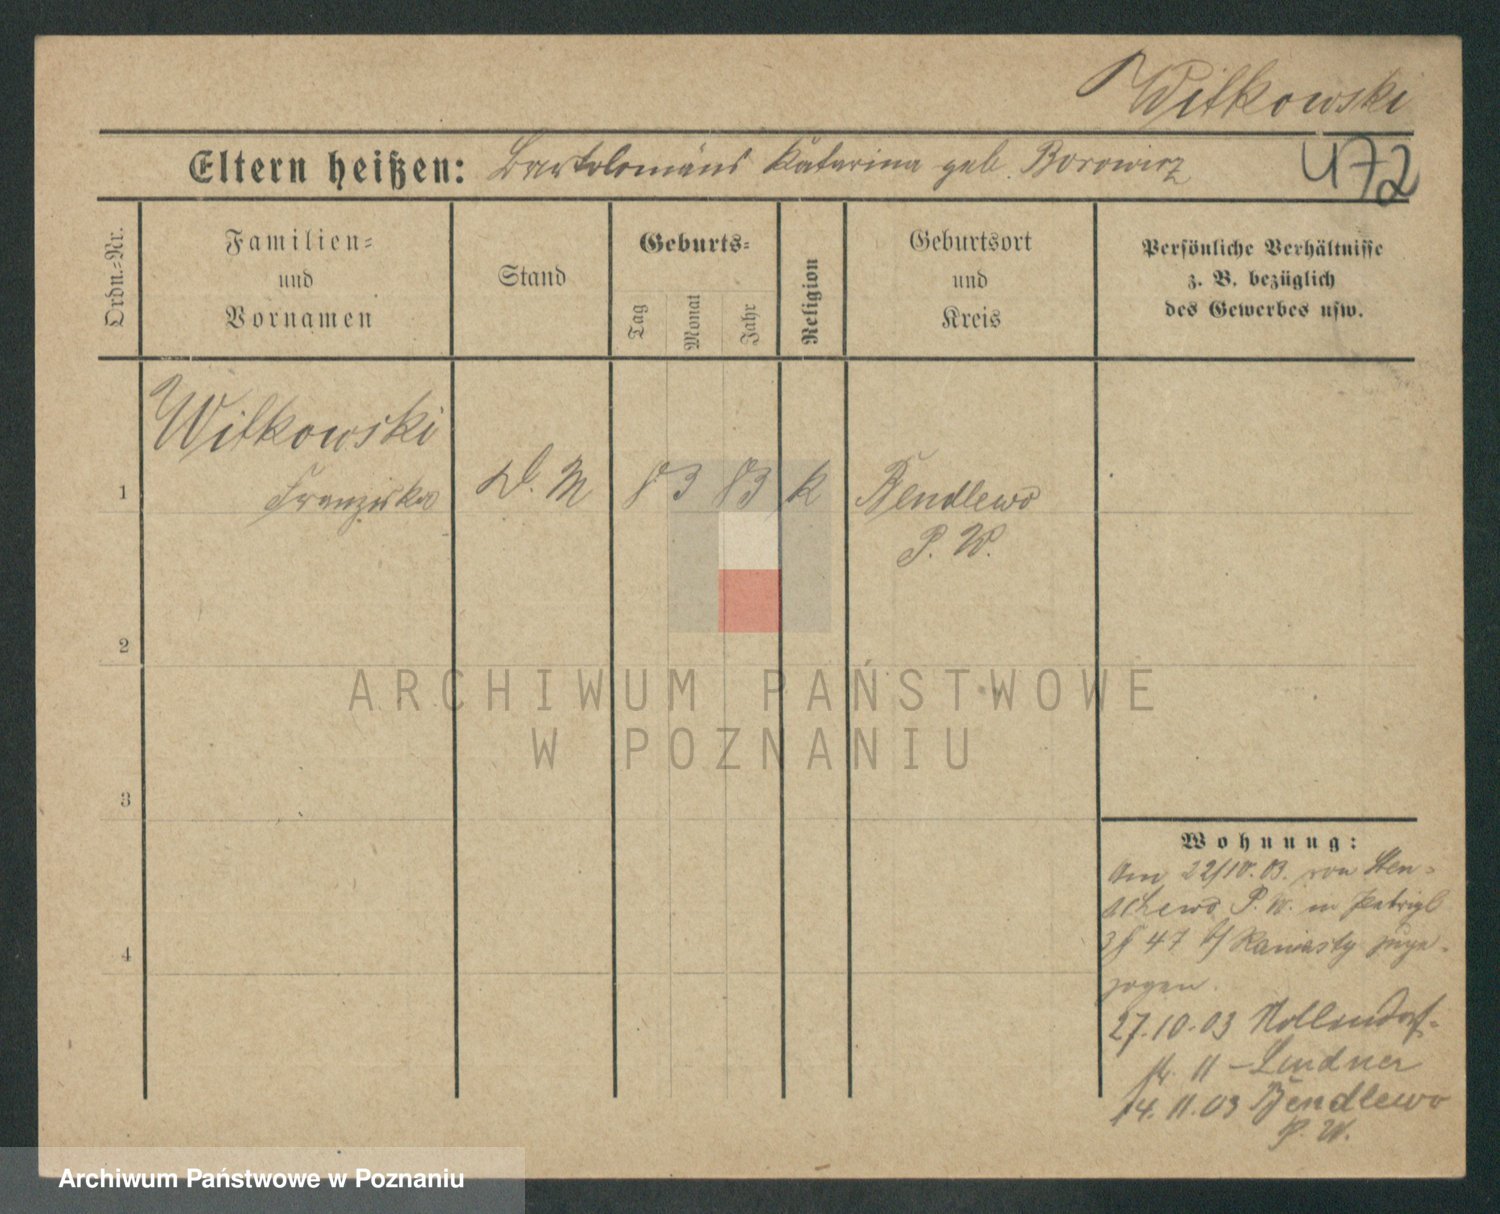 Witkowski
Eltern heißen: Bartolomäus Katarina geb. Borowicz
472
Ordn.-Nr.
Familien-
und
Vornamen
Stand
Geburts-
Tag
Monat
Jahr
Religion
Geburtsort
und
Kreis
Persönliche Verhältnisse
z. B. bezüglich
des Gewerbes usw.
Witkowski
1 Franziska D. M 8 3 83 k Bendlewo
P. W.
2
3
4
ARCHIWUM PAŃSTWOWE
W POZNANIU
Wohnung:
Am 22/10. 03. von Sten-
schewo P. W. in
47 b/ zuge-
zogen.
27.10.03 Hollendorf-
str. 11 - Lindner
14.11.03 Bendlewo
P. W.
Archiwum Państwowe w Poznaniu